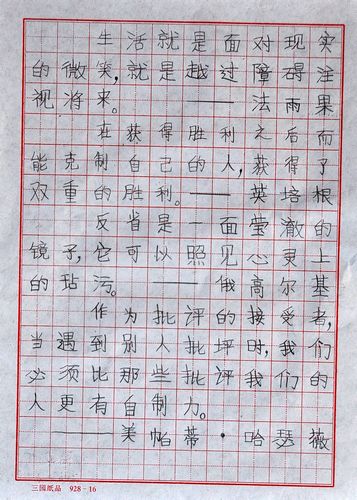 生活就是面对现实
的微笑,就是越过障碍注
视将来。——法雨果
在获得胜利之后而
能克制自己的人,获得了
双重的胜利。——英培根
反省是一面莹澈的
镜子,它可以照见心灵上
的玷污。——俄高尔基
作为批评的接受者,
当遇到别人批坪时,我们
必须比那些批评我们的
人更有自制力。
——美帕蒂·哈瑟薇
三园纸品 928-16